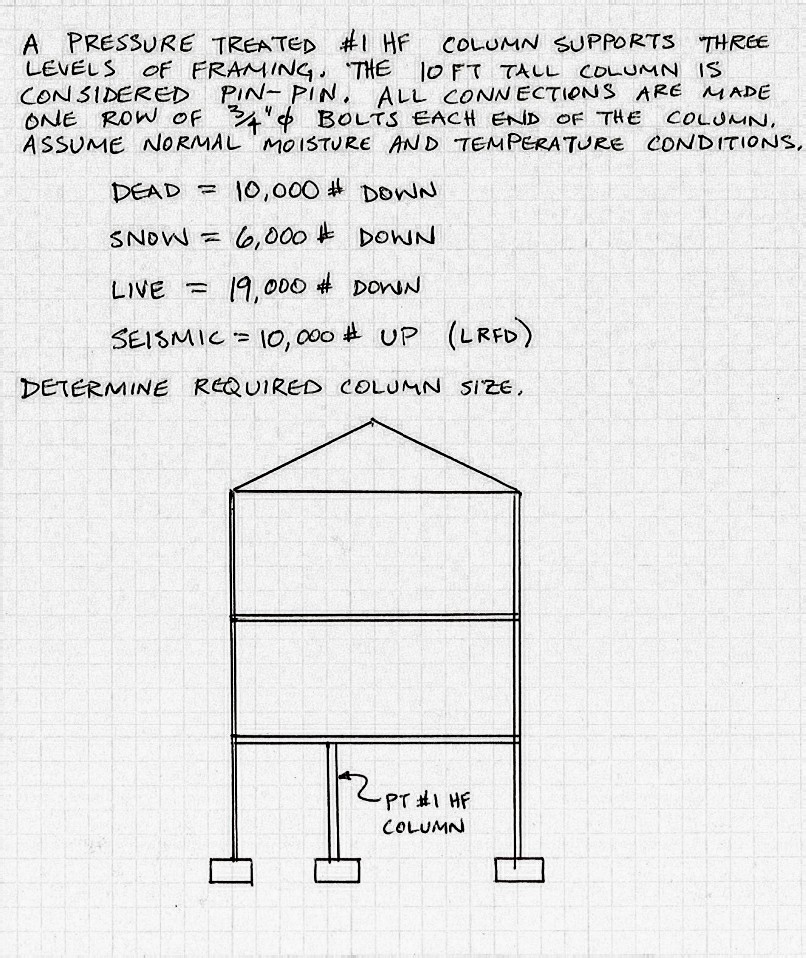 A PRESSURE TREATED #1 HF COLUMN SUPPORTS THREE
LEVELS OF FRAMING. THE 10 FT TALL COLUMN IS
CONSIDERED PIN-PIN. ALL CONNECTIONS ARE MADE
ONE ROW OF 3/4"φ BOLTS EACH END OF THE COLUMN.
ASSUME NORMAL MOISTURE AND TEMPERATURE CONDITIONS.
DEAD = 10,000 # DOWN
SNOW = 6,000 # DOWN
LIVE = 19,000 # DOWN
SEISMIC = 10,000 # UP (LRFD)
DETERMINE REQUIRED COLUMN SIZE.
PT #1 HF
COLUMN